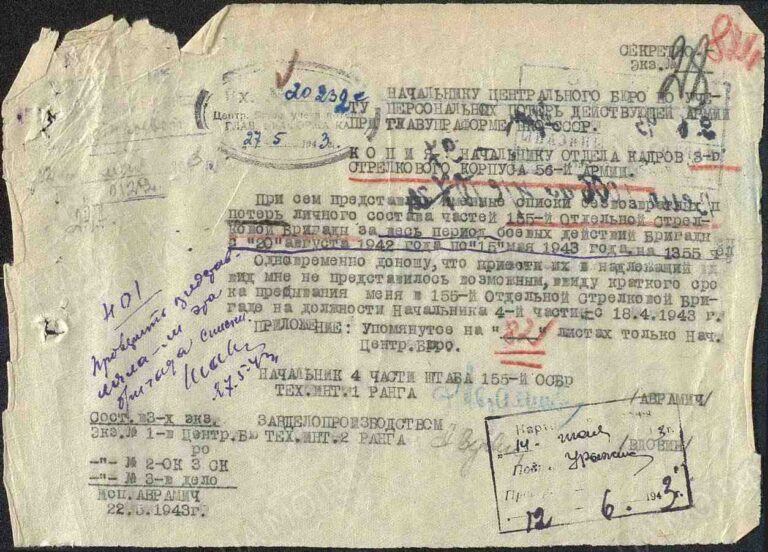 СЕКРЕТНО
экз.№
28
824
20239с
27 5 1943г.
НАЧАЛЬНИКУ ЦЕНТРАЛЬНОГО БЮРО ПО УЧЕ-
ТУ ПЕРСОНАЛЬНЫХ ПОТЕРЬ ДЕЙСТВУЮЩЕЙ АРМИИ
ПРИ ГЛАВУПРАФОРМЕ НКО СССР.
К О П И Я: НАЧАЛЬНИКУ ОТДЕЛА КАДРОВ 3-го
СТРЕЛКОВОГО КОРПУСА 56-й АРМИИ.
При сем представляю именные списки безвозвратных
потерь личного состава частей 155-й Отдельной Стрел-
ковой Бригады за весь период боевых действий Бригады
с "20" августа 1942 года по "15" мая 1943 года, на 1355 ч
Одновременно доношу, что привести их в надлежащий их
вид мне не представилось возможным, ввиду краткого сро
ка пребывания меня в 155-й Отдельной Стрелковой Бри-
гаде на должности Начальника 4-й части, с 18.4.1943 г.
ПРИЛОЖЕНИЕ: Упомянутое на "82" листах только Нач.
Центр.Бюро.
401
Проверить
бригада списки.
27.5.43
НАЧАЛЬНИК 4 ЧАСТИ ШТАБА 155-й ОСБР
ТЕХ.ИНТ.1 РАНГА /АВРАМИЧ/
ЗАВДЕЛОПРОИЗВОДСТВОМ
ТЕХ.ИНТ.2 РАНГА /ВДОВИН/
Сост. в 3-х экз.
Экз.№ 1-в Центр.Бю
ро
-"- № 2-ОК 3 СК
-"- № 3-в дело
Исп.АВРАМИЧ
22.5.1943г.
12 6 1943г.